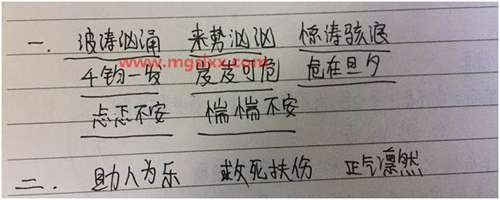 一. 波涛汹涌 来势汹汹 惊涛骇浪
www.mgslxx.com
千钧一发 岌岌可危 危在旦夕
忐忑不安 惴惴不安
二. 助人为乐 救死扶伤 正气凛然